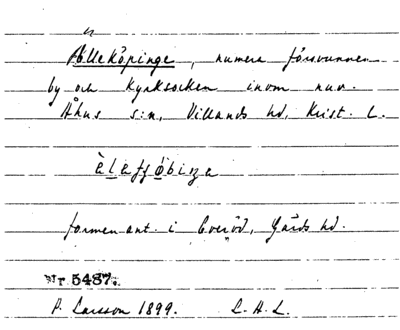 Ålleköpinge, numera försvunnen
by och kyrksocken inom nuv.
Åhus s:n, Villands hd, Krist. L.
formen ant. i Everöd, Gärds hd.
Nr 5487.
P. Larsson 1899. L.H.L.